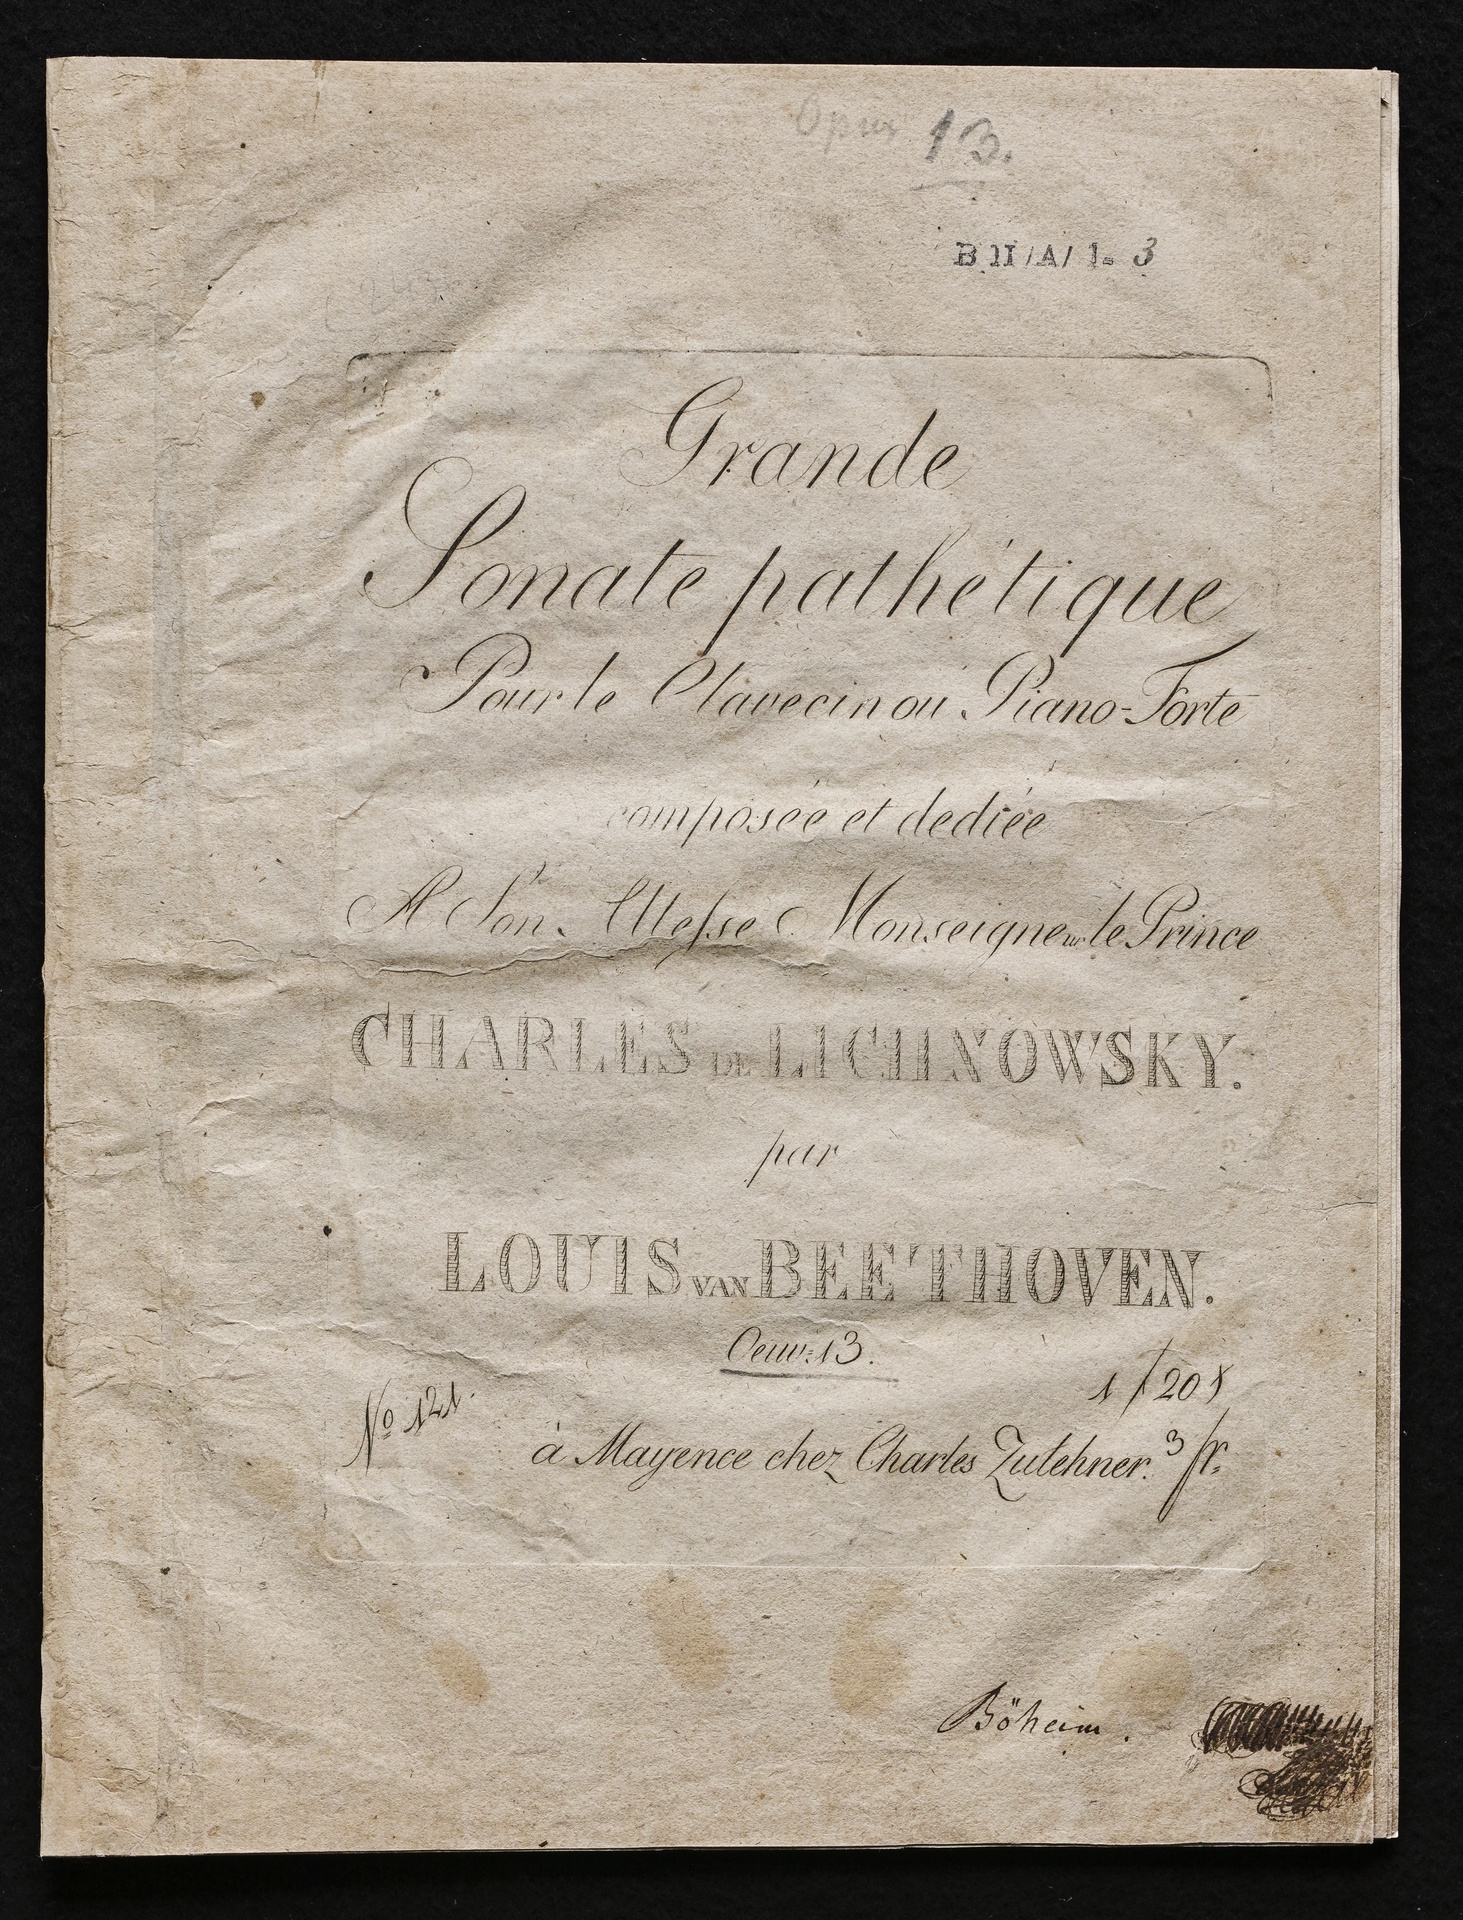 Opus 13.
B II/A/ 1- 3
Grande
Sonate pathétique
Pour le Clavecin ou Piano-Forte
composée et dediée
A Son Altesse Monseigneur le Prince
CHARLES DE LICHNOWSKY.
par
LOUIS VAN BEETHOVEN.
Oeuv: 13.
No 121.
1 f 20 x
à Mayence chez Charles Zulehner. 3 fr.
Böheim.